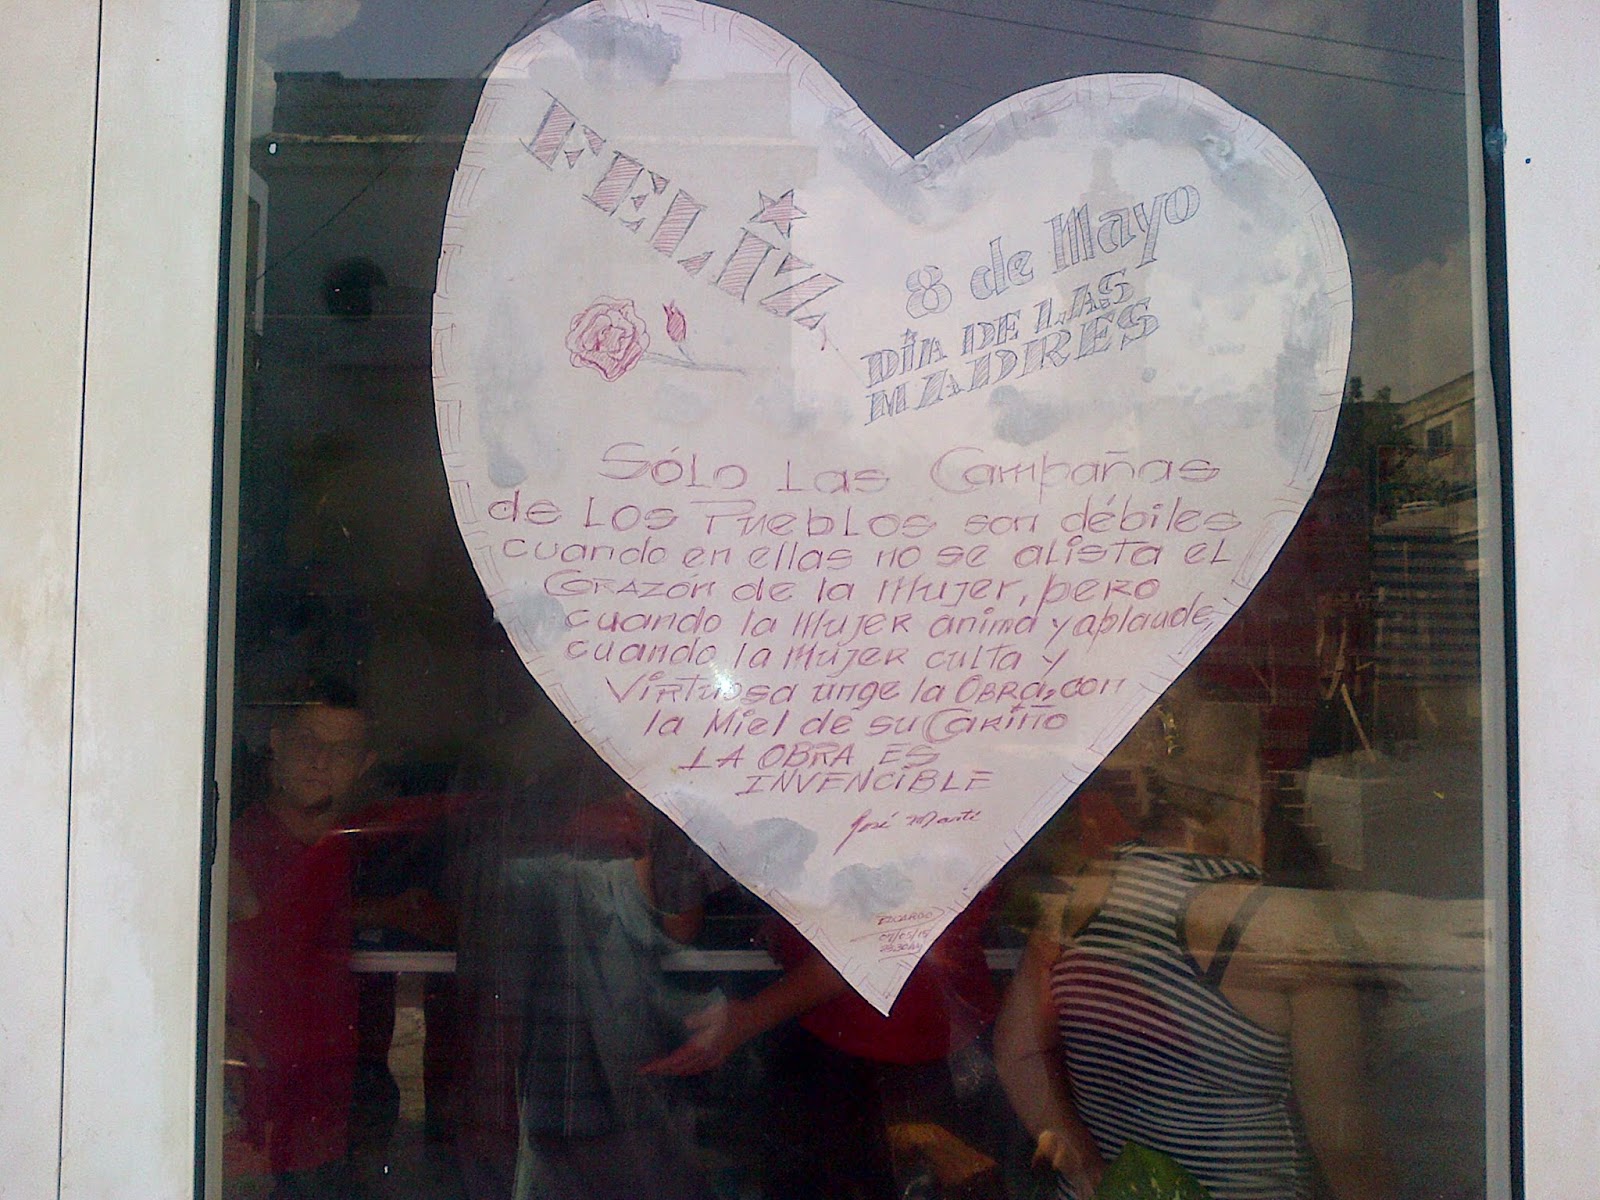 FELIZ
8 de Mayo
DÍA DE LAS
MADRES
Sólo las Campañas
de los Pueblos son débiles
cuando en ellas no se alista el
Corazón de la Mujer, pero
cuando la Mujer anima y aplaude,
cuando la Mujer culta y
Virtuosa unge la Obra, con
la Miel de su Cariño
LA OBRA ES
INVENCIBLE
José Martí